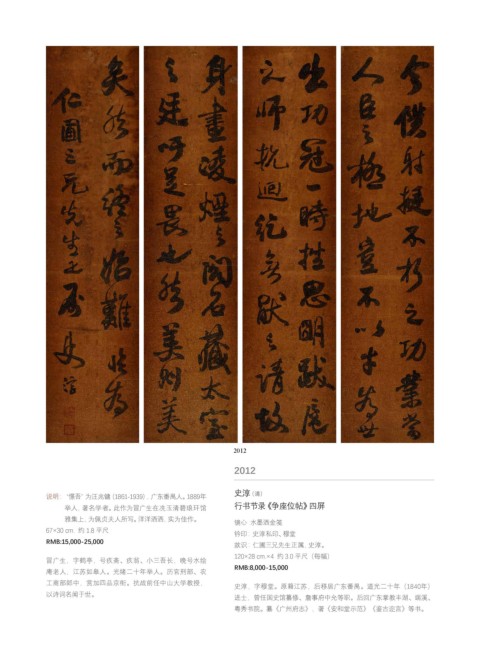 今僕射挺不朽之功業當
人臣之極地豈不以才為世
出功冠一時挫思明跋扈
之師抗迴紇無厭之請故
身畫凌煙之閣名藏太室
之廷吁足畏也然美則美
矣然而終之始難 為
仁圃三兄先生之属 史淳
2012
2012
说明：“憬吾”为汪兆镛（1861-1939），广东番禺人。1889年
举人，著名学者。此作为冒广生在兆玉清碧琅玕馆
雅集上，为佩贞夫人所写。洋洋洒洒，实为佳作。
67×30 cm. 约 1.8 平尺
RMB:15,000-25,000
冒广生，字鹤亭，号疚斋、疚翁、小三吾长，晚号水绘
庵老人，江苏如皋人。光绪二十年举人。历官刑部、农
工商部郎中，赏加四品京衔。抗战前任中山大学教授，
以诗词名闻于世。
史淳（清）
行书节录《争座位帖》四屏
镜心 水墨洒金笺
钤印：史淳私印、穆堂
款识：仁圃三兄先生正属，史淳。
120×28 cm.×4 约 3.0 平尺（每幅）
RMB:8,000-15,000
史淳，字穆堂。原籍江苏，后移居广东番禺。道光二十年（1840年）
进士，曾任国史馆纂修、詹事府中允等职。后回广东掌教丰湖、端溪、
粤秀书院。纂《广州府志》，著《安和堂示范》《鉴古迩言》等书。